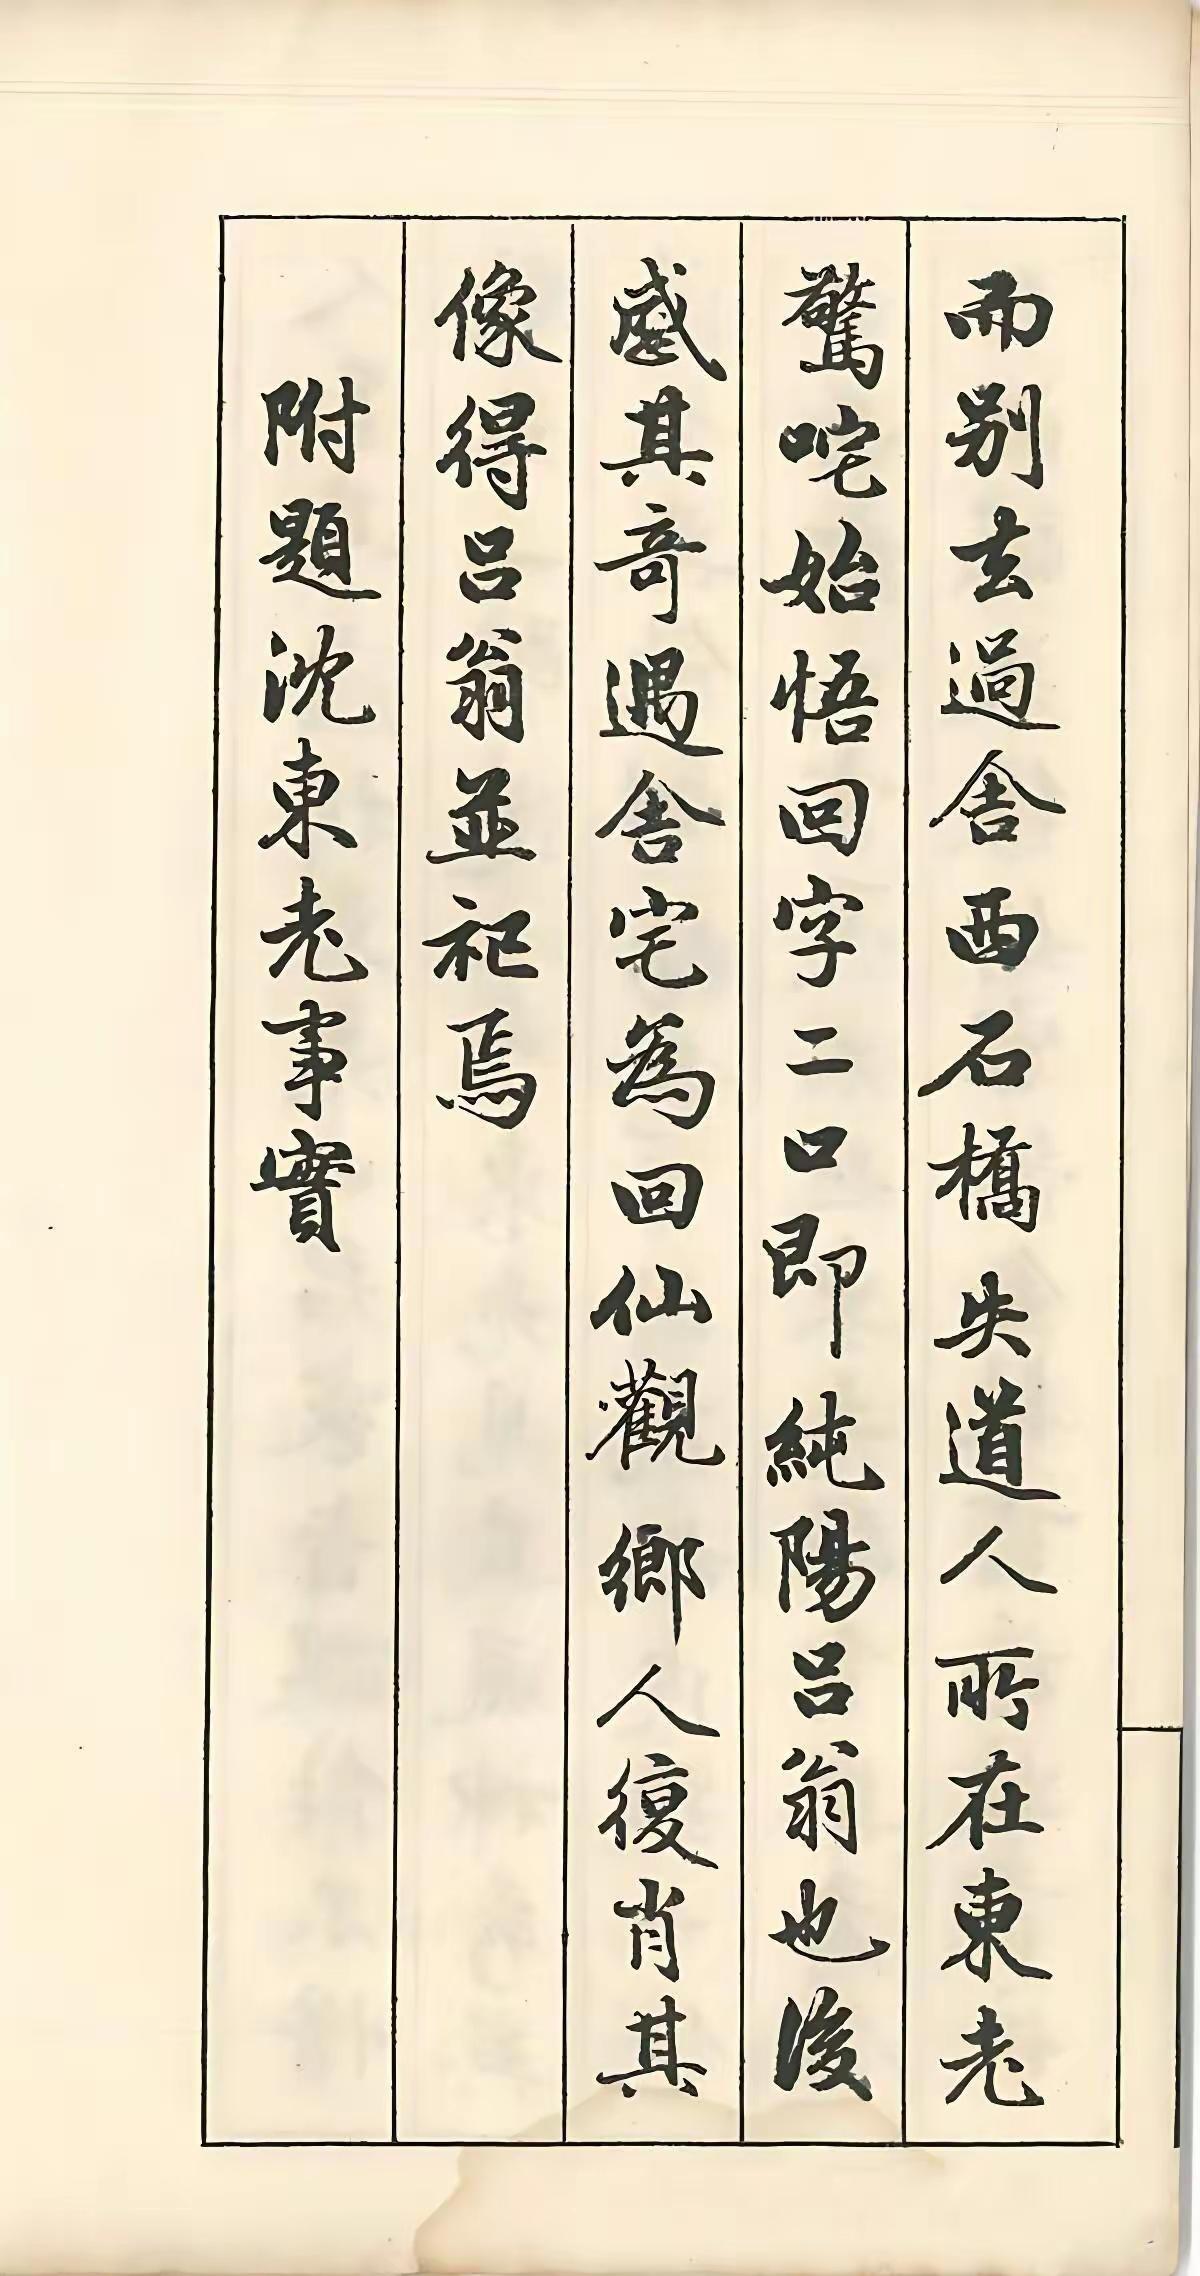 而别去過舍西石橋失道人所在東老
驚咤始悟回字二口即純陽呂翁也後
感其奇遇舍宅為回仙觀鄉人復肖其
像得呂翁並祀焉
附題沈東老事實